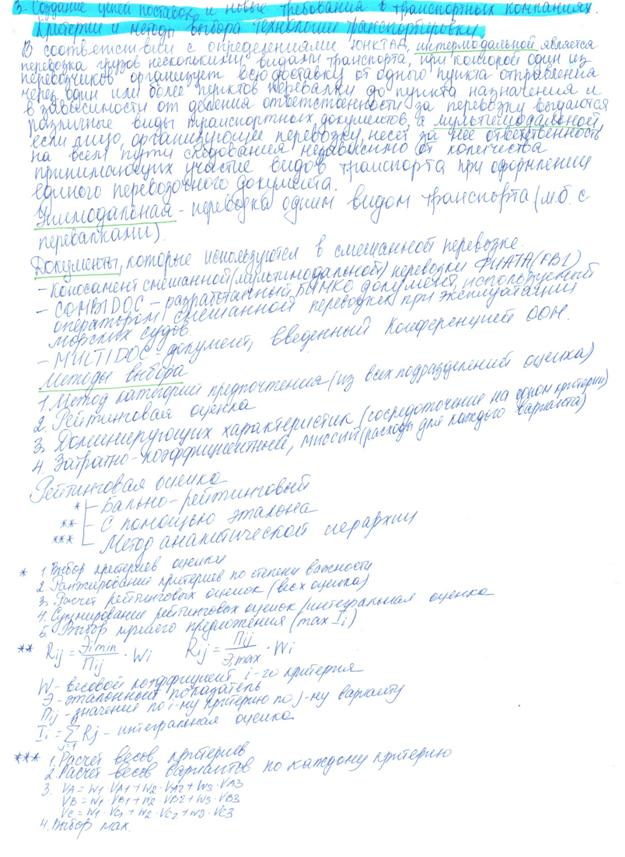 3. Создание цепей поставок и новые требования в транспортных компаниях.
Критерии и методы выбора технологии транспортировки
В соответствии с определениями ЮНКТАД, интермодальной является
перевозка грузов несколькими видами транспорта, при которой один из
перевозчиков организует всю доставку от одного пункта отправления
через один или более пунктов перевалки до пункта назначения и
в зависимости от деления ответственности за перевозку выдаются
различные виды транспортных документов, а мультимодальной,
если лицо, организующее перевозку, несет за нее ответственность
на всем пути следования независимо от количества
принимающих участие видов транспорта при оформлении
единого перевозочного документа.
Унимодальная - перевозка одним видом транспорта (м.б. с
перевалками).
Документы, которые используются в смешанной перевозке
- Коносамент смешанной (мультимодальной) перевозки ФИАТА (FBL)
- COMBIDOC - разработанный БИМКО документ, используемый
оператором смешанной перевозки при эксплуатации
морских судов.
- MULTIDOC - документ, введенный Конференцией ООН.
Методы выбора
1. Метод категорий предпочтения (из всех подразделений оценка)
2. Рейтинговая оценка
3. Доминирующих характеристик (сосредоточение на одном критерии)
4. Затратно-коэффициентный, миссий (расходы для каждого варианта)
Рейтинговая оценка
* Бально-рейтинговый
** С помощью эталона
*** Метод аналитической иерархии
* 1. Выбор критериев оценки
2. Ранжирование критериев по степени важности
3. Расчет рейтинговых оценок (вес х оценка)
4. Суммирование рейтинговых оценок / интегральная оценка
5. Выбор лучшего предложения (max Ii)
** Rij = Эi min / Пij · Wi Rij = Пij / Эi max · Wi
W - весовой коэффициент i-го критерия
Э - эталонный показатель
Пij - значение по i-му критерию по j-му варианту
Ii = Σ Rj - интегральная оценка
*** 1. Расчет весов критериев
2. Расчет весов вариантов по каждому критерию
3. VA = W1 · VA1 + W2 · VA2 + W3 · VA3
VB = W1 · VB1 + W2 · VB2 + W3 · VB3
VC = W1 · VC1 + W2 · VC2 + W3 · VC3
4. Выбор мах.